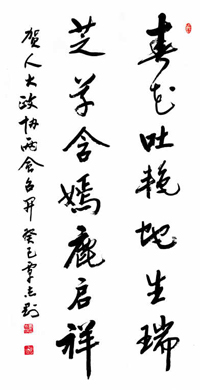 春花吐艳蛇生瑞
芝草含嫣鹿启祥
贺人大政协两会召开 癸巳覃志刚